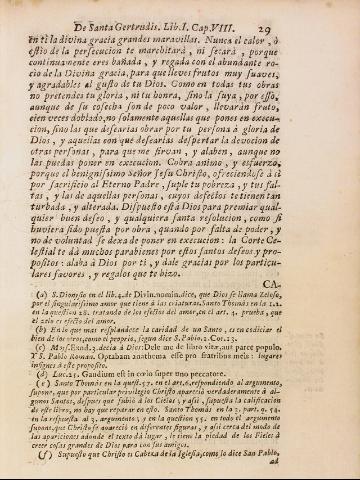 De Santa Gertrudis. Lib. I. Cap. VIII. 29
en ti la divina gracia grandes maravillas. Nunca el calor, ò
estio de la persecucion te marchitarà, ni secarà, porque
continuamente eres bañada, y regada con el abundante ro-
cio de la Divina gracia, para que lleves frutos muy suaves,
y agradables al gusto de tu Dios. Como en todas tus obras
no pretendes tu gloria, ni tu honra, sino la suya, por esso,
aunque de su cosecha son de poco valor, llevaràn fruto,
cien veces doblado, no solamente aquellas que pones en execu-
cion, sino las que desearias obrar por tu persona à gloria de
Dios, y aquellas con que desearias despertar la devocion de
otras personas, para que me sirvan, y alaben, aunque no
las puedas poner en execucion. Cobra animo, y esfuerzo,
porque el benignissimo Señor Jesu Christo, ofreciendose à sì
por sacrificio al Eterno Padre, suple tu pobreza, y tus fal-
tas, y las de aquellas personas, cuyos defectos te tienen tan
turbada, y alterada. Dispuesto està Dios para premiar qual-
quier buen deseo, y qualquiera santa resolucion, como si
huviera sido puesta por obra, quando por falta de poder, y
no de voluntad se dexa de poner en execucion: la Corte Ce-
lestial te dà muchos parabienes por estos santos deseos y pro-
positor: alaba à Dios por ti, y dale gracias por los particu-
lares favores, y regalos que te hizo.
CA-
(a) S. Dionysio en el lib. 4. de Divin. nomin. dice, que Dios se llama Zeloso,
por el singularissimo amor que tiene à las criaturas. Santo Thomàs en la 1.2.
en la question 28. tratando de los efectos del amor, en el art. 4. prueba, que
el zelo es efecto del amor.
(b) En lo que mas resplandece la caridad de un Santo, es en codiciar el
bien de los otros, como el proprio, segun dice S. Pablo. 2. Cor. 13.
(c) Moys. Exod. 3 decia à Dios: Dele me de libro vitæ, aut parce populo.
Y S. Pablo Roman. Optabam anathema esse pro fratribus meis: lugares
insignes à este proposito.
(d) Luc. 15. Gaudium est in cœlo super uno peccatore.
(e) Santo Thomàs en la quest. 57. en el art. 6. respondiendo al argumento,
supone, que por particular privilegio Christo apareciò verdaderamente à al-
gunos Santos, despues que subiò à los Cielos; y assi, supuesta la calificacion
de este libro, no hay que reparar en esso. Santo Thomàs en la 3. part. q. 54.
en la respuesta al 3. argumento; y en la question 55. en todo el argumento
supone, que Christo se apareciò en diferentes figuras, y assi cerca del modo de
las apariciones adonde el texto dà lugar, le tiene la piedad de los Fieles à
creer cosas grandes de Dios para con sus amigos.
(f) Supuesto que Christo es Cabeza de la Iglesia, como lo dice San Pablo,
ad